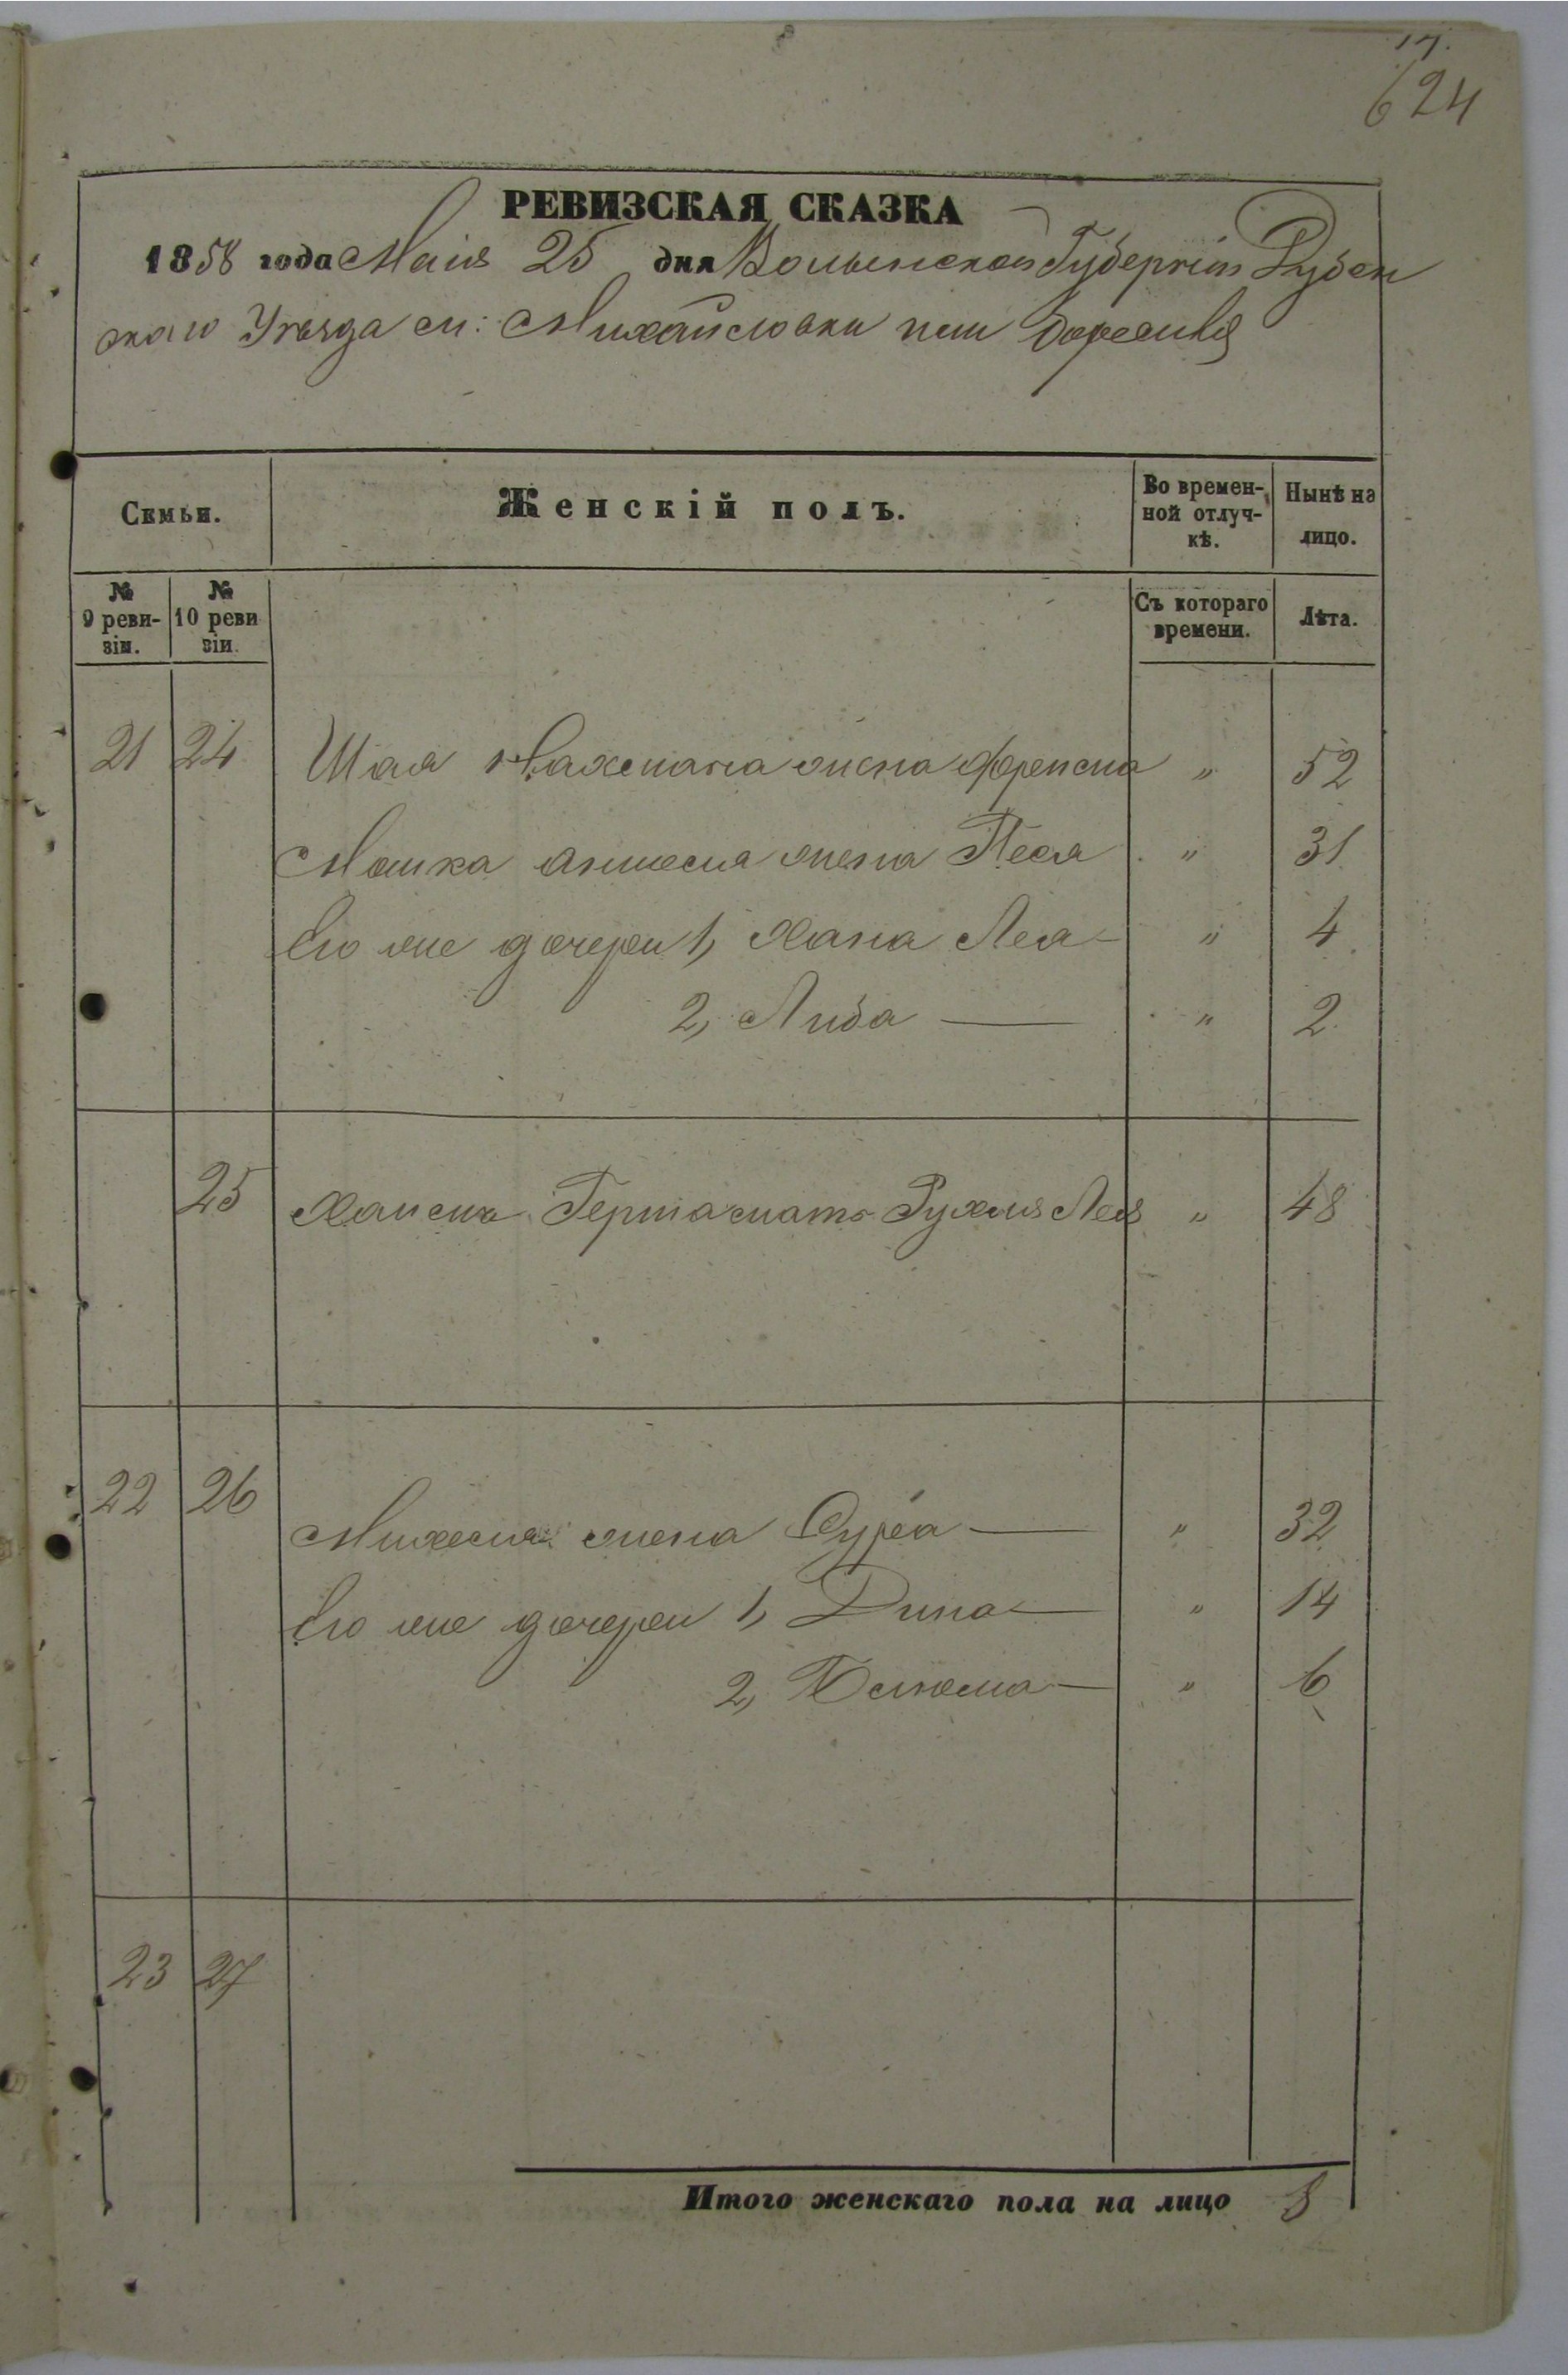 17.
624
РЕВИЗСКАЯ СКАЗКА
1858 года Маія 25 дня Волынской Губерніи Дубен
скаго Уѣзда м: Михайловки или
Семьи.
Женскій полъ.
Во времен-
ной отлуч-
кѣ.
Нынѣ на
лицо.
№
9 реви-
зіи.
№
10 реви
зіи.
Съ котораго
времени.
Лѣта.
21 24 Шая жена „ 52
Мошка жена Песя „ 31
Его же дочери 1, Хана Лея — „ 4
2, Либа — „ 2
25 Герша мать Рухля Лея „ 48
22 26
Михеля жена Сура — „ 32
Его же дочери 1, Дина — „ 14
2, Блюма — „ 6
23 27
Итого женскаго пола на лицо 8